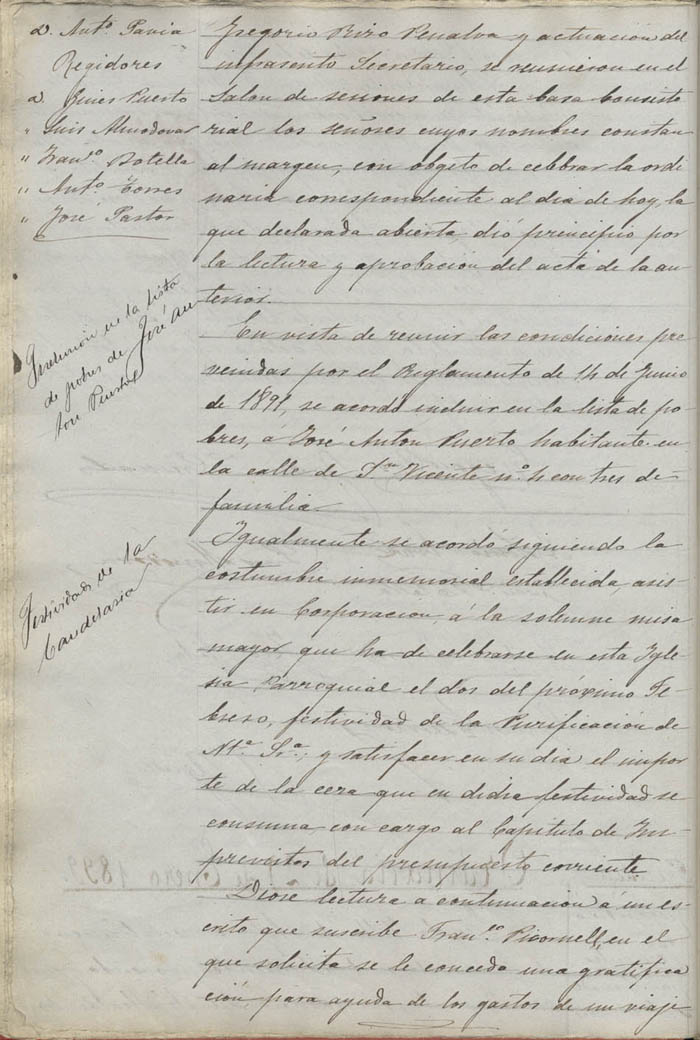 D. Antº. Pavia
Regidores
D. Gines Puerto
" Luis Almodovar
" Franº. Botella
" Antº. Torres
" José Pastor
Gregorio Rizo Penalva y actuación del
infrascrito Secretario, se reunieron en el
Salon de sesiones de esta Casa Consisto
rial los señores cuyos nombres constan
al margen, con objeto de celebrar la ordi
naria correspondiente al dia de hoy, la
que declarada abierta, dió principio por
la lectura y aprobacion del acta de la an
terior.
Inclusión en la lista
de pobres de José An
ton Puerto
En vista de reunir las condiciones pre
venidas por el Reglamento de 14 de Junio
de 1891, se acordó incluir en la lista de po
bres, á José Anton Puerto habitante en
la calle de Sn. Vicente nº. 4 con tres de
familia.
Festividad de la
Candelaria
Igualmente se acordó siguiendo la
costumbre inmemorial establecida, asis
tir en Corporacion, á la solemne misa
mayor que ha de celebrarse en esta Igle
sia Parroquial el dos del próximo Fe
brero, festividad de la Purificación de
Ntª. Srª., y satisfacer en su dia el impor
te de la cera que en dicha festividad se
consuma con cargo al Capitulo de Im
previstos del presupuesto corriente
Diose lectura a continuacion á un es
crito que suscribe Franº. Picornell, en el
que solicita se le conceda una gratifica
ción para ayuda de los gastos de un viaje